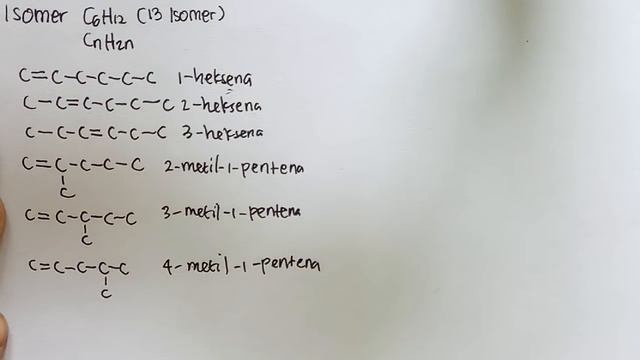 Isomer C6H12 (13 Isomer)
CnH2n
C=C-C-C-C-C 1-heksena
C-C=C-C-C-C 2-heksena
C-C-C=C-C-C 3-heksena
C=C-C-C-C 2-metil-1-pentena
C
C=C-C-C-C 3-metil-1-pentena
C
C=C-C-C-C 4-metil-1-pentena
C